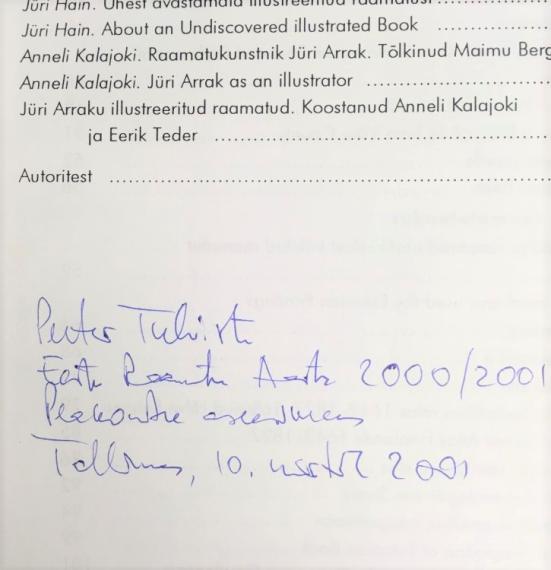 Jüri Hain. Ühest avastamata illustreeritud raamatust
Jüri Hain. About an Undiscovered illustrated Book
Anneli Kalajoki. Raamatukunstnik Jüri Arrak. Tõlkinud Maimu Berg
Anneli Kalajoki. Jüri Arrak as an illustrator
Jüri Arraku illustreeritud raamatud. Koostanud Anneli Kalajoki
ja Eerik Teder
Autoritest
Eesti Raamatu Aasta 2000/2001
Tallinnas, 10. märtsil 2001